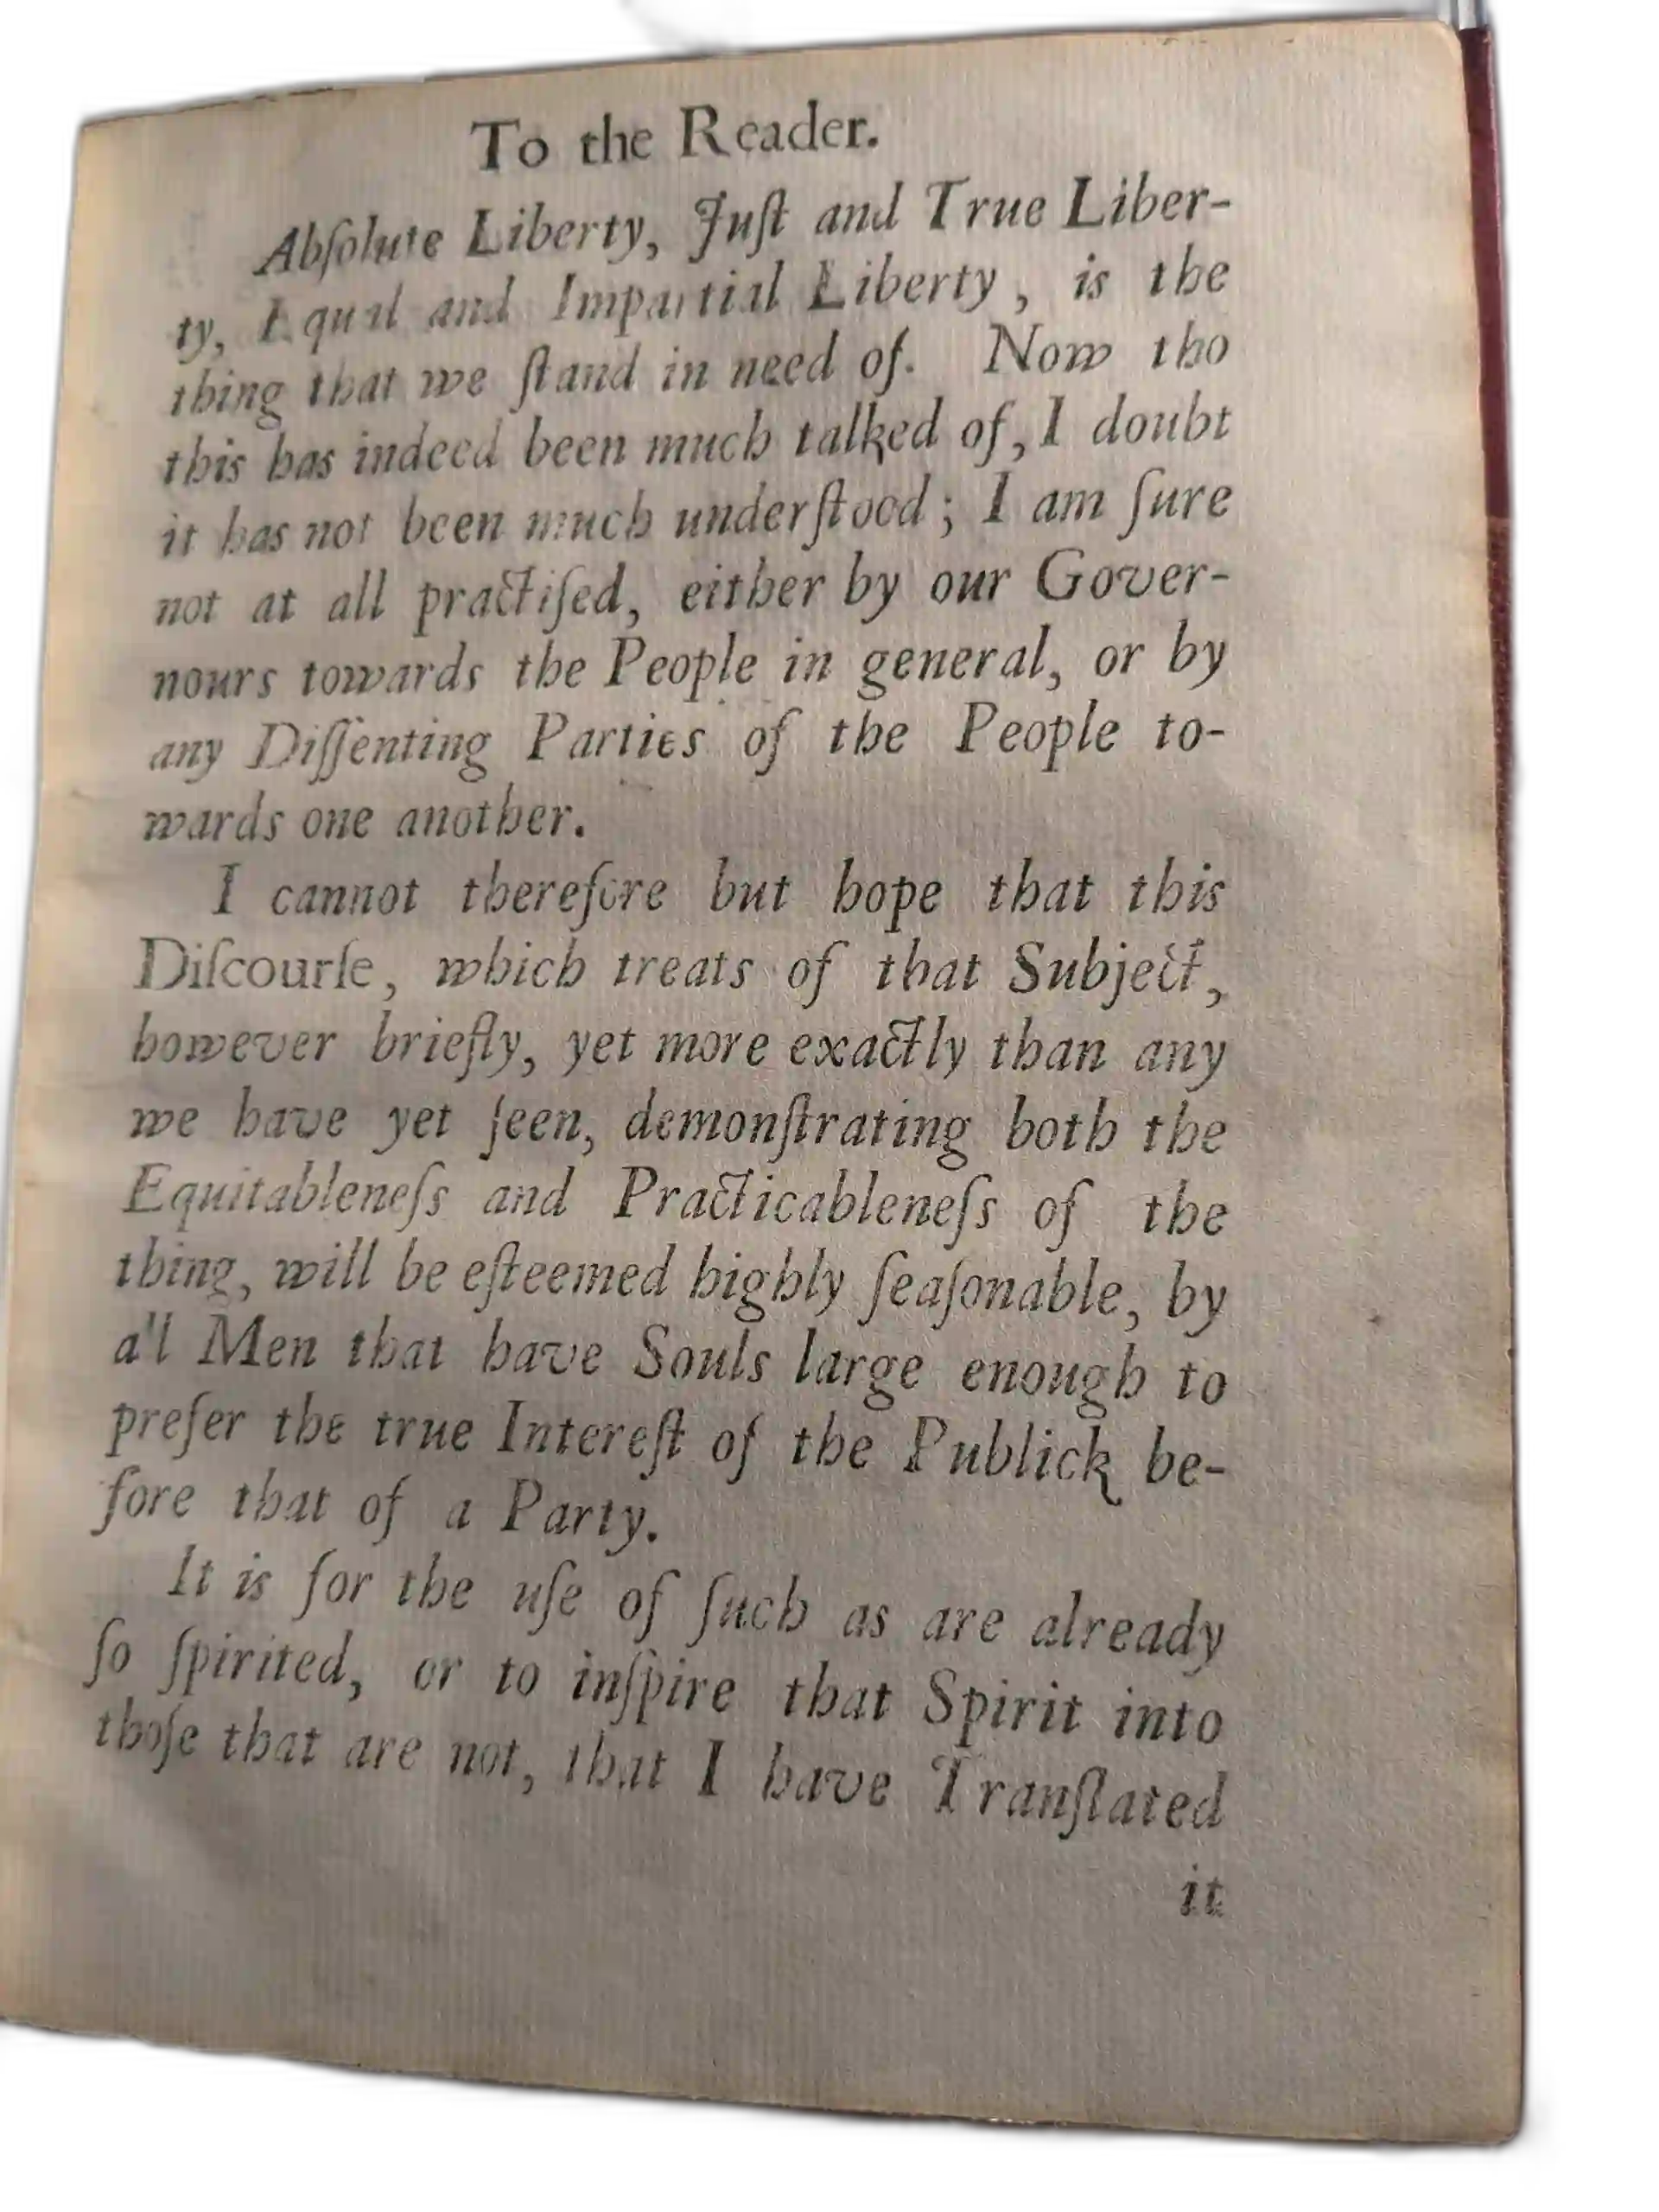 To the Reader.
Abſolute Liberty, Juſt and True Liber-
ty, Equal and Impartial Liberty, is the
thing that we ſtand in need of. Now tho
this has indeed been much talked of, I doubt
it has not been much underſtood; I am ſure
not at all practiſed, either by our Gover-
nours towards the People in general, or by
any Diſſenting Parties of the People to-
wards one another.
I cannot therefore but hope that this
Diſcourſe, which treats of that Subject,
however briefly, yet more exactly than any
we have yet ſeen, demonſtrating both the
Equitableneſs and Practicableneſs of the
thing, will be eſteemed highly ſeaſonable, by
a'l Men that have Souls large enough to
prefer the true Intereſt of the Publick be-
fore that of a Party.
It is for the uſe of ſuch as are already
ſo ſpirited, or to inſpire that Spirit into
thoſe that are not, that I have Tranſlated
it